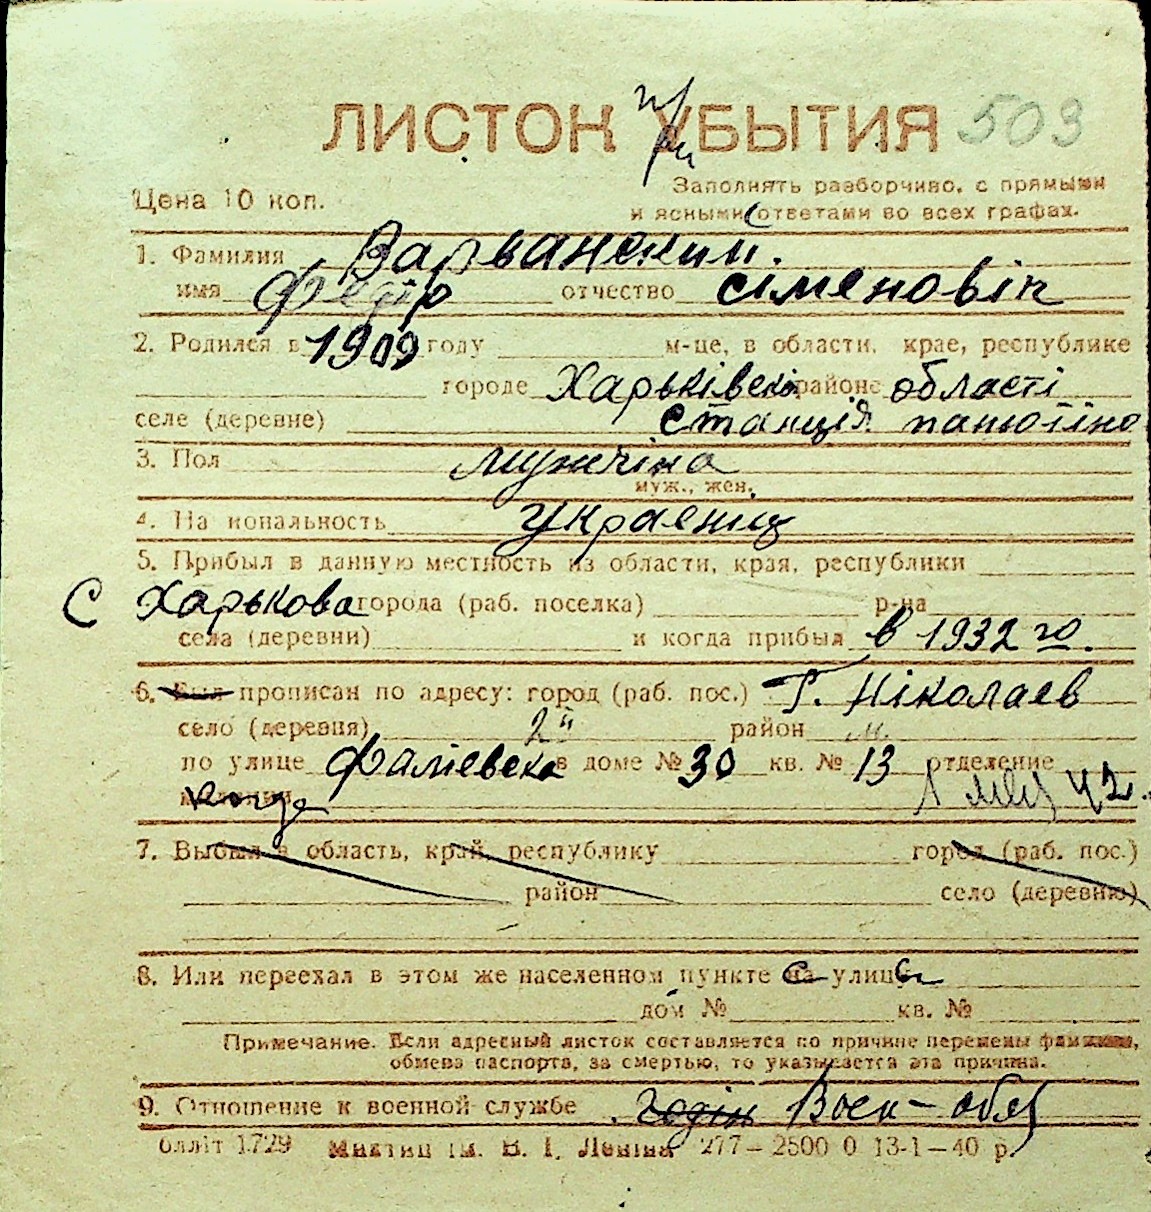 ЛИСТОК УБЫТИЯ 503
при
Цена 10 коп.
Заполнять разборчиво, с прямыми
и ясными ответами во всех графах.
1. Фамилия Варванский.
имя Федір отчество Сіменовіч
2. Родился в 1909 году м-це, в области, крае, республике
городе Харьківскоі районе області
селе (деревне) станція панютіно
3. Пол мужчіна
муж., жен.
4. Национальность Украениц
5. Прибыл в данную местность из области, края, республики
С Харькова города (раб. поселка) р-на
села (деревни) и когда прибыл в 1932 го.
6. Был прописан по адресу: город (раб. пос.) Г. Ніколаев
село (деревня) 2й район м.
по улице Фаліевска в доме № 30 кв. № 13 отделение
милиции 42
7. Выбыл в область, край, республику город (раб. пос.)
район село (деревню)
8. Или переехал в этом же населенном пункте на улицу
дом № кв. №
Примечание. Если адресный листок составляется по причине перемены фамилии,
обмена паспорта, за смертью, то указывается эта причина.
9. Отношение к военной службе годін Воен-обяз
облліт 1729 Миктип ім. В. І. Леніна 277—2500 0 13-1—40 р.